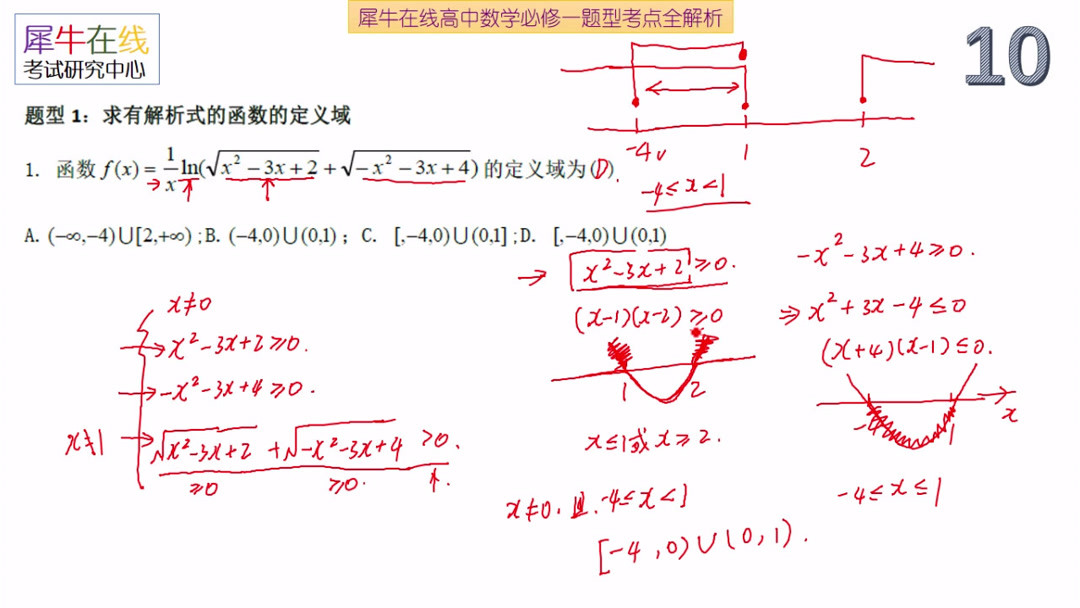 犀牛在线高中数学必修一题型考点全解析
犀牛在线
考试研究中心
10
题型 1：求有解析式的函数的定义域
-4 1 2
1. 函数 f(x) = 1/x ln(√(x² − 3x + 2) + √(−x² − 3x + 4)) 的定义域为(D).
-4≤x<1
A. (−∞,−4)∪[2,+∞) ;B. (−4,0)∪(0,1) ; C. [,−4,0)∪(0,1] ;D. [,−4,0)∪(0,1)
x≠0
x²-3x+2≥0.
-x²-3x+4≥0.
x≠1 √(x²-3x+2) + √(-x²-3x+4) >0.
≥0 ≥0.
→ x²-3x+2≥0.
(x-1)(x-2)≥0
1 2
x≤1或x≥2.
-x²-3x+4≥0.
⇒ x²+3x-4≤0
(x+4)(x-1)≤0.
-4 1 x
-4≤x≤1
x≠0. 且. -4≤x<1
[-4,0)∪(0,1).